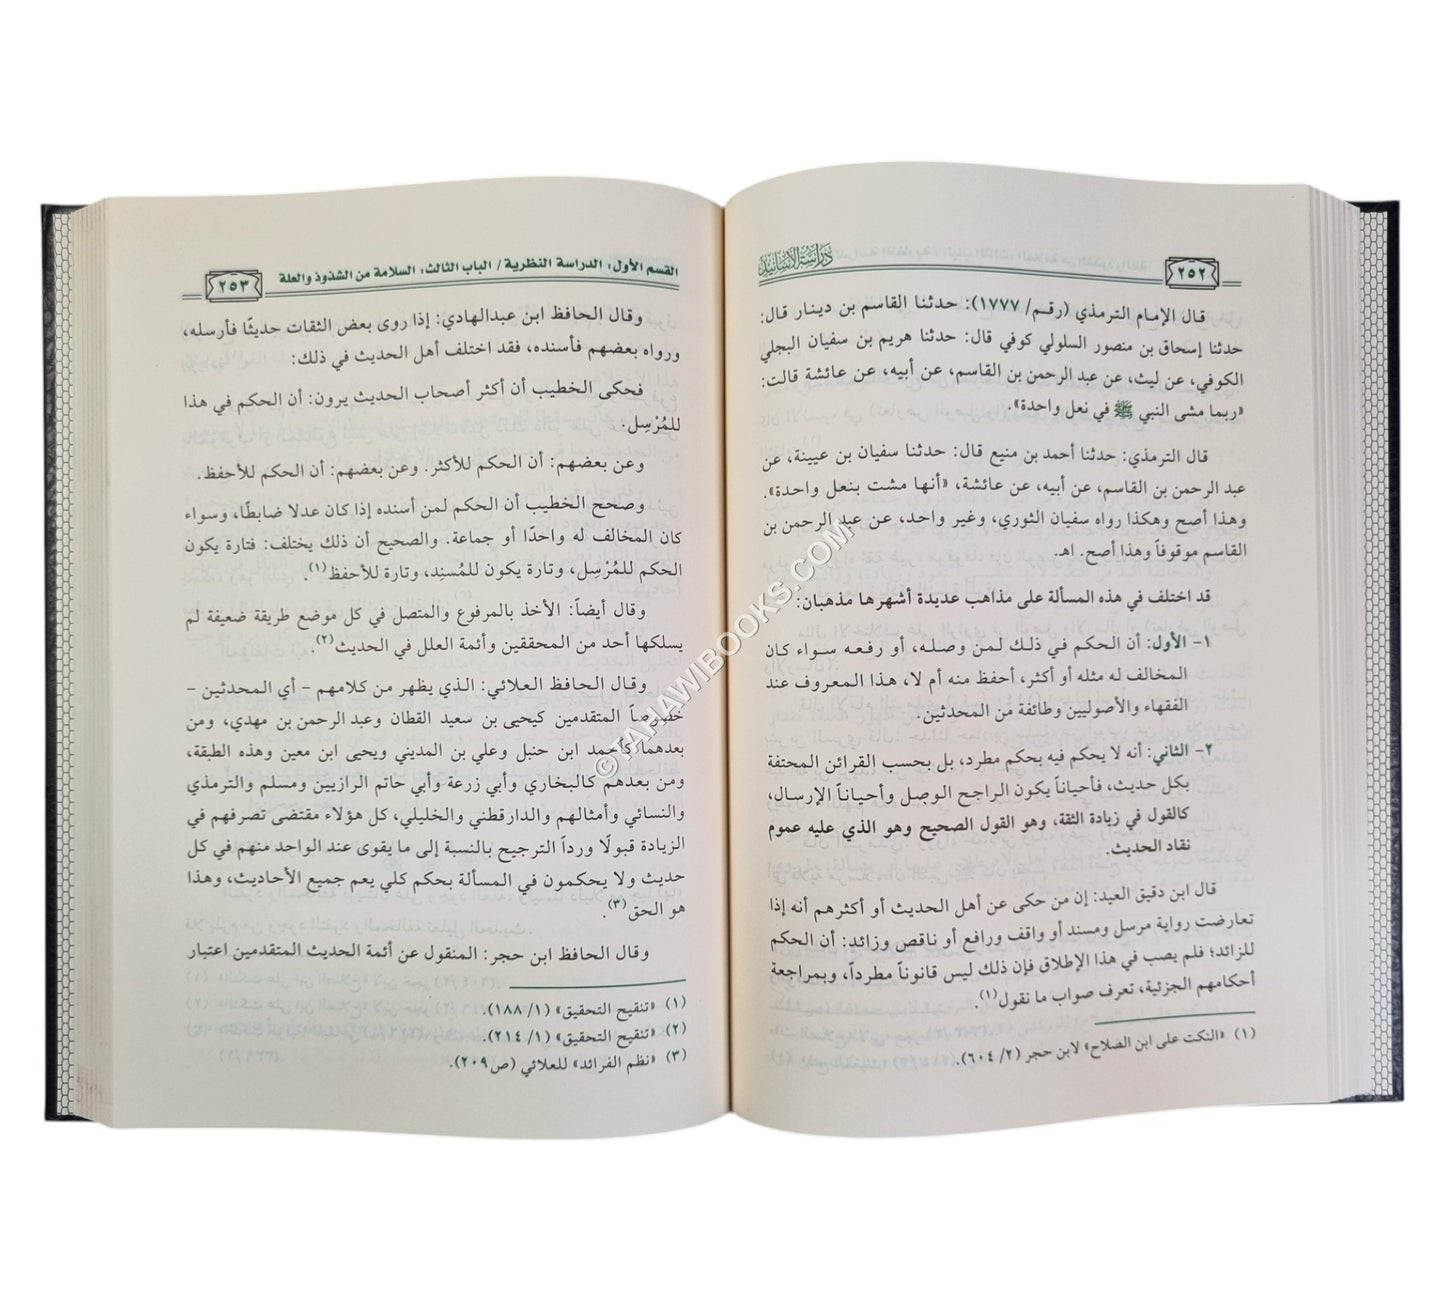 ٢٥٢
دراسة الأسانيد
قال الإمام الترمذي (رقم/ ١٧٧٧): حدثنا القاسم بن دينار قال:
حدثنا إسحاق بن منصور السلولي كوفي قال: حدثنا هريم بن سفيان البجلي
الكوفي، عن ليث، عن عبد الرحمن بن القاسم، عن أبيه، عن عائشة قالت:
«ربما مشى النبي ﷺ في نعل واحدة».
قال الترمذي: حدثنا أحمد بن منيع قال: حدثنا سفيان بن عيينة، عن
عبد الرحمن بن القاسم، عن أبيه، عن عائشة، «أنها مشت بنعل واحدة».
وهذا أصح وهكذا رواه سفيان الثوري، وغير واحد، عن عبد الرحمن بن
القاسم موقوفاً وهذا أصح. اهـ.
قد اختلف في هذه المسألة على مذاهب عديدة أشهرها مذهبان:
١- الأول: أن الحكم في ذلك لمن وصله، أو رفعه سواء كان
المخالف له مثله أو أكثر، أحفظ منه أم لا، هذا المعروف عند
الفقهاء والأصوليين وطائفة من المحدثين.
٢- الثاني: أنه لا يحكم فيه بحكم مطرد، بل بحسب القرائن المحتفة
بكل حديث، فأحياناً يكون الراجح الوصل وأحياناً الإرسال،
كالقول في زيادة الثقة، وهو القول الصحيح وهو الذي عليه عموم
نقاد الحديث.
قال ابن دقيق العيد: إن من حكى عن أهل الحديث أو أكثرهم أنه إذا
تعارضت رواية مرسل ومسند أو واقف ورافع أو ناقص وزائد: أن الحكم
للزائد؛ فلم يصب في هذا الإطلاق فإن ذلك ليس قانوناً مطرداً، وبمراجعة
أحكامهم الجزئية، تعرف صواب ما نقول(١).
(١) «النكت على ابن الصلاح» لابن حجر (٢/ ٦٠٤).
القسم الأول: الدراسة النظرية/ الباب الثالث: السلامة من الشذوذ والعلة
٢٥٣
وقال الحافظ ابن عبدالهادي: إذا روى بعض الثقات حديثًا فأرسله،
ورواه بعضهم فأسنده، فقد اختلف أهل الحديث في ذلك:
فحكى الخطيب أن أكثر أصحاب الحديث يرون: أن الحكم في هذا
للمُرْسِل.
وعن بعضهم: أن الحكم للأكثر. وعن بعضهم: أن الحكم للأحفظ.
وصحح الخطيب أن الحكم لمن أسنده إذا كان عدلا ضابطًا، وسواء
كان المخالف له واحدًا أو جماعة. والصحيح أن ذلك يختلف: فتارة يكون
الحكم للمُرْسِل، وتارة يكون للمُسنِد، وتارة للأحفظ(١).
وقال أيضاً: الأخذ بالمرفوع والمتصل في كل موضع طريقة ضعيفة لم
يسلكها أحد من المحققين وأئمة العلل في الحديث(٢).
وقال الحافظ العلائي: الذي يظهر من كلامهم – أي المحدثين –
خصوصاً المتقدمين كيحيى بن سعيد القطان وعبد الرحمن بن مهدي، ومن
بعدهما كأحمد ابن حنبل وعلي بن المديني ويحيى ابن معين وهذه الطبقة،
ومن بعدهم كالبخاري وأبي زرعة وأبي حاتم الرازيين ومسلم والترمذي
والنسائي وأمثالهم والدارقطني والخليلي، كل هؤلاء مقتضى تصرفهم في
الزيادة قبولًا ورداً الترجيح بالنسبة إلى ما يقوى عند الواحد منهم في كل
حديث ولا يحكمون في المسألة بحكم كلي يعم جميع الأحاديث، وهذا
هو الحق(٣).
وقال الحافظ ابن حجر: المنقول عن أئمة الحديث المتقدمين اعتبار
(١) «تنقيح التحقيق» (١/ ١٨٨).
(٢) «تنقيح التحقيق» (١/ ٢١٤).
(٣) «نظم الفرائد» للعلائي (ص٢٠٩).
© TAHAWIBOOKS.COM